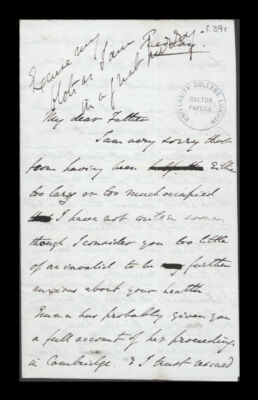 f. 39r
Excuse my
blots as I am
in a great hurry
Tuesday.
UNIVERSITY COLLEGE LONDON
GALTON
PAPERS
My dear Father
I am very sorry that
from having been either
too lazy or too much occupied
I have not written sooner
though I consider you too little
of an invalid to be further
anxious about your health
Emma has probably given you
a full account of her proceedings
in Cambridge. & I trust